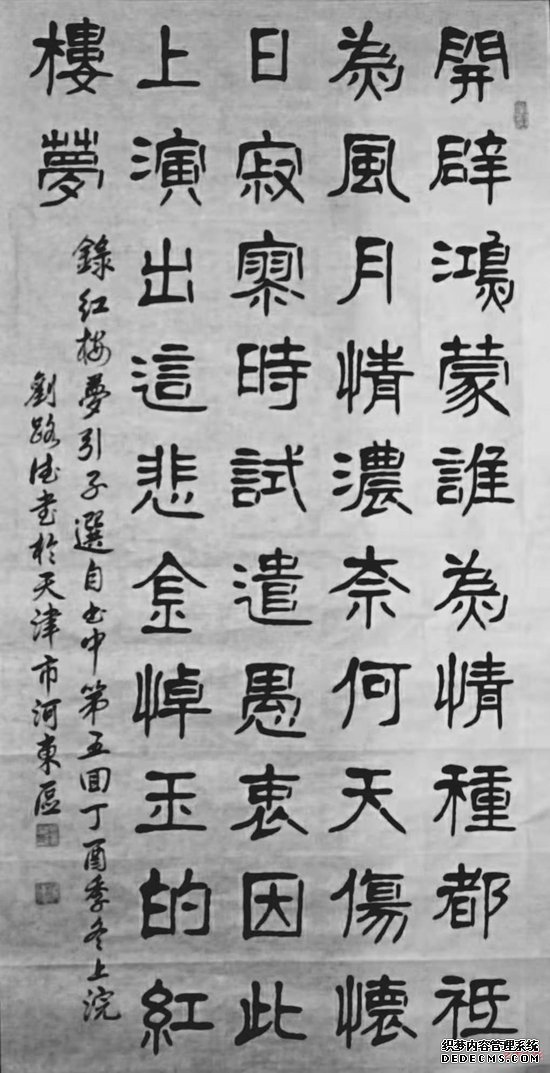 開辟鴻蒙誰為情種都祗
為風月情濃奈何天傷懷
日寂寥時試遣愚衷因此
上演出這悲金悼玉的紅
樓夢
錄红楼夢引子選自书中第五回丁酉季冬上浣
劉路德书於天津市河東區
织梦内容管理系统
DEDECMS.COM